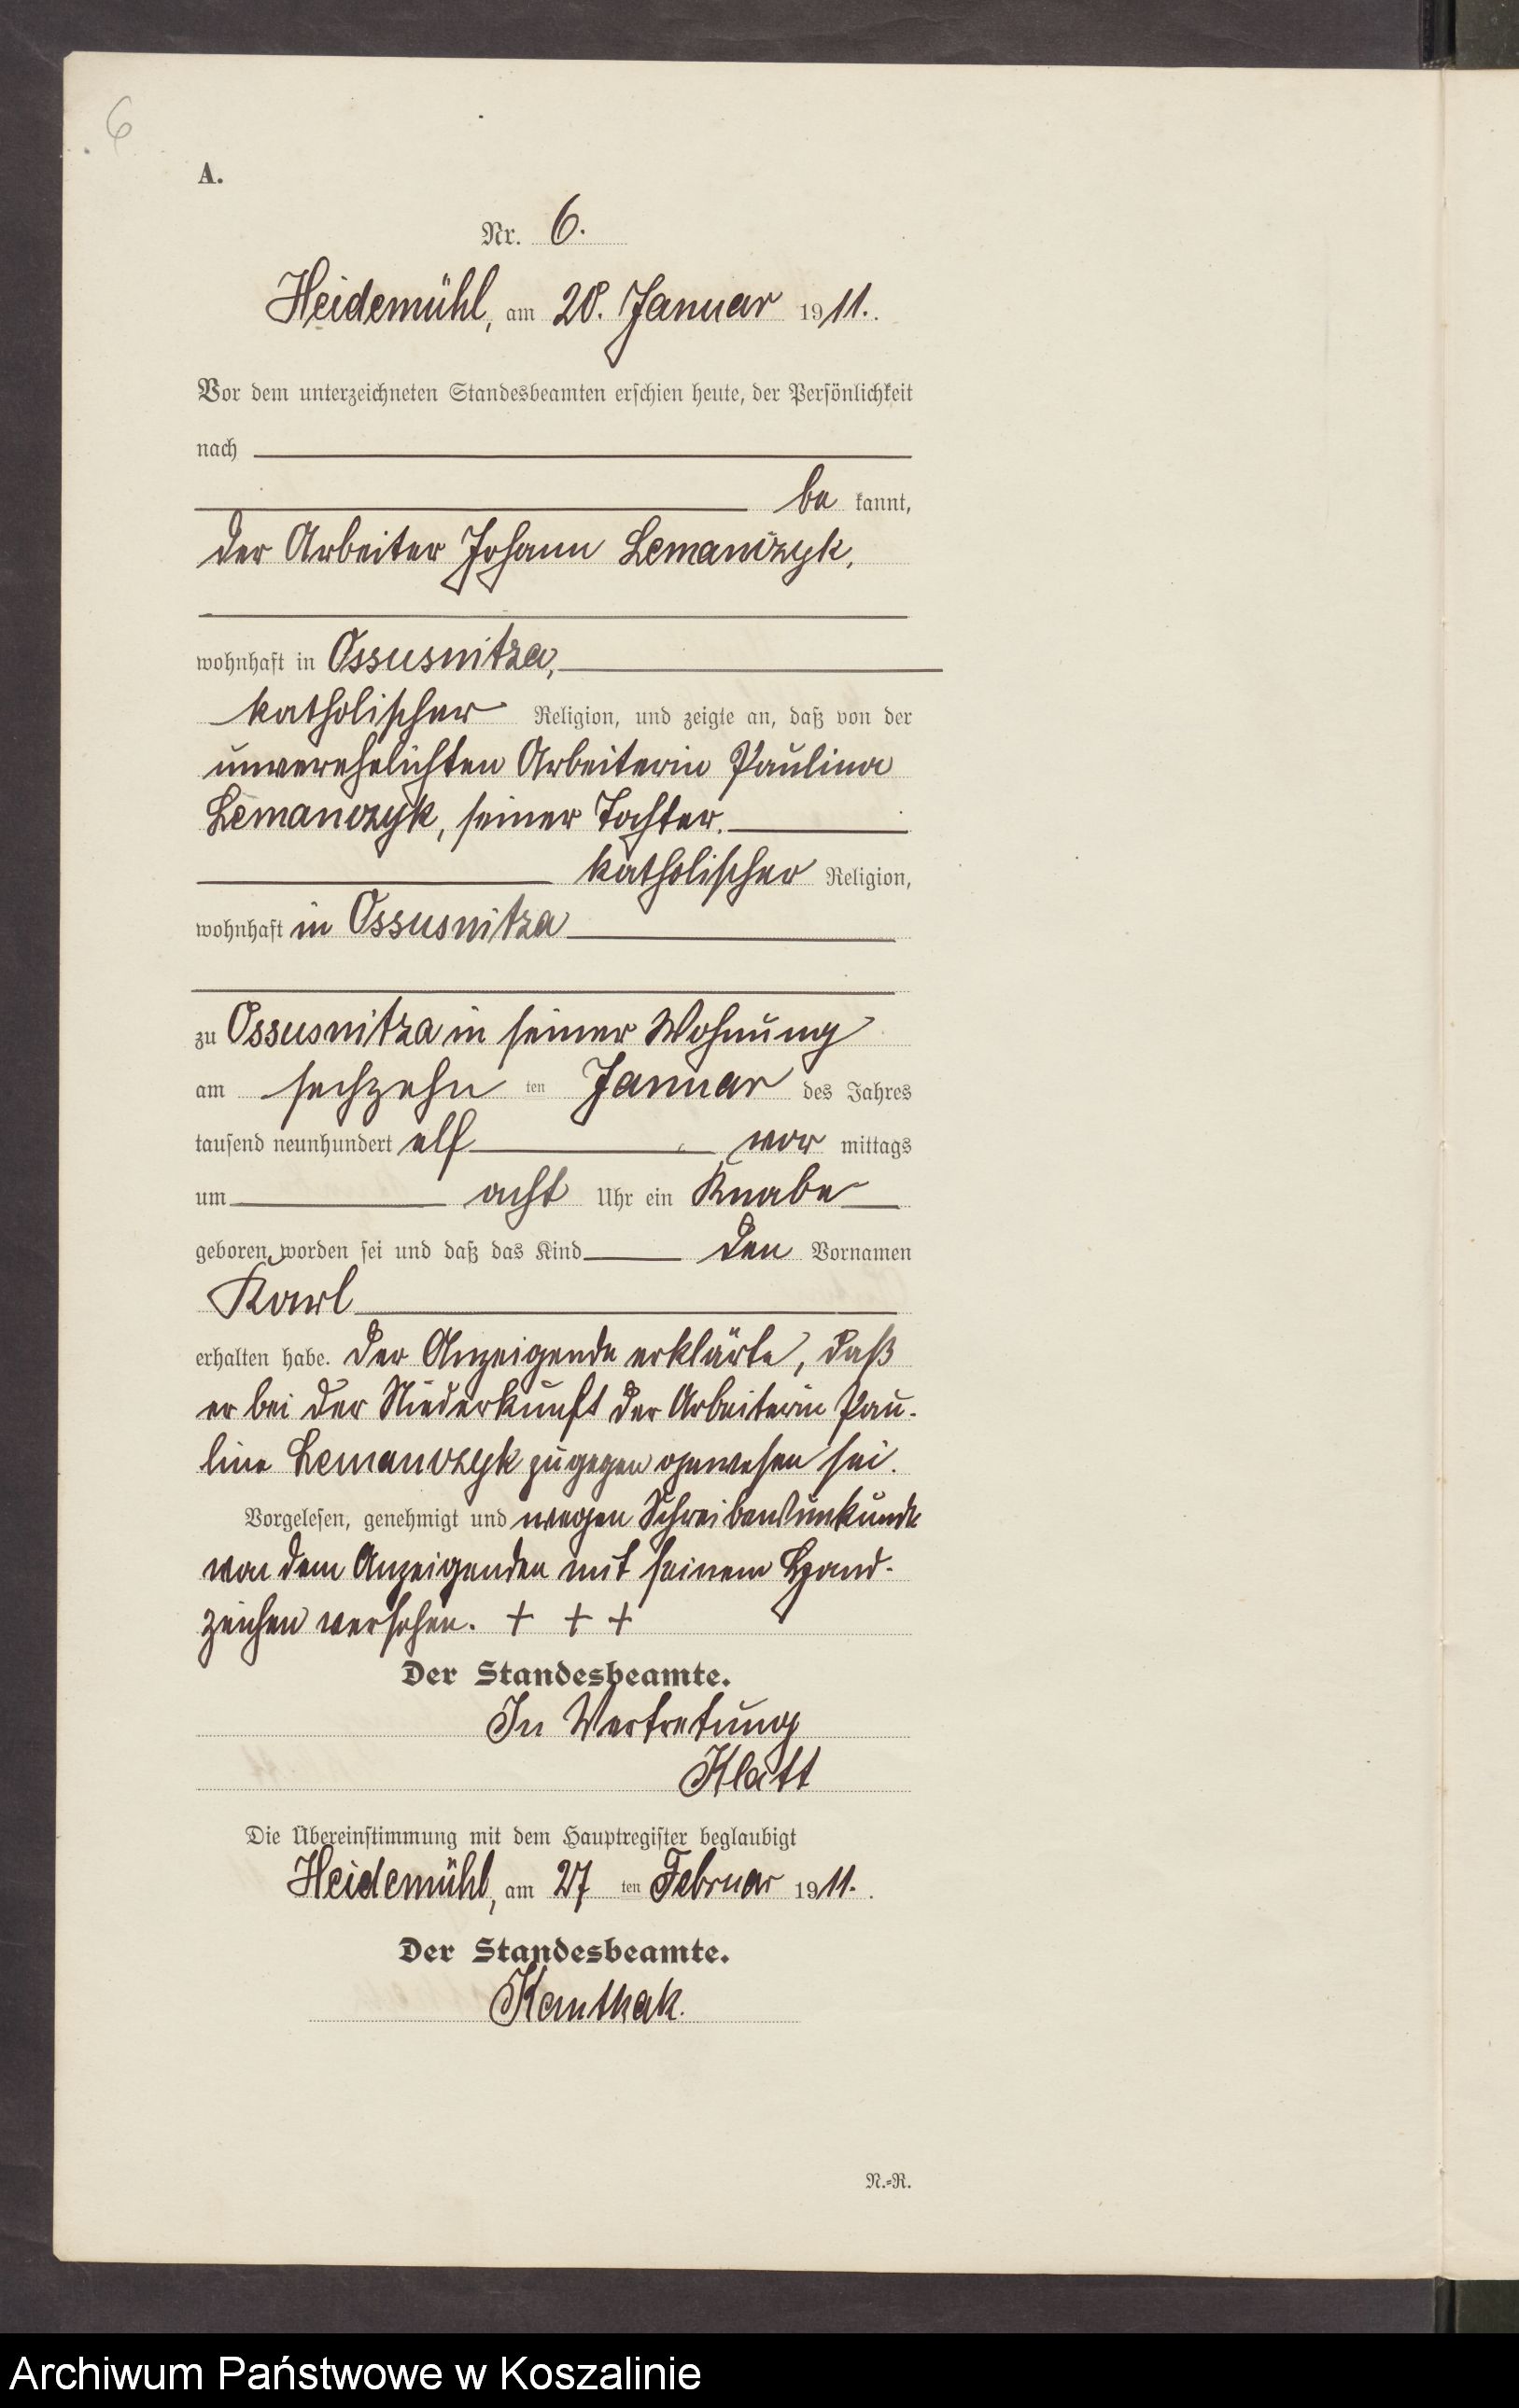 6
A.
Nr. 6.
Heidemühl, am 20. Januar 1911.
Vor dem unterzeichneten Standesbeamten erschien heute, der Persönlichkeit
nach
be kannt,
der Arbeiter Johann Lemanczyk,
wohnhaft in Ossusnitza,
katholischer Religion, und zeigte an, daß von der
unverehelichten Arbeiterin Paulina
Lemanczyk, seiner Tochter,
katholischer Religion,
wohnhaft in Ossusnitza
zu Ossusnitza in seiner Wohnung
am sechzehn ten Januar des Jahres
tausend neunhundert elf vor mittags
um acht Uhr ein Knabe
geboren worden sei und daß das Kind den Vornamen
Karl
erhalten habe. Der Anzeigende erklärte, daß
er bei der Niederkunft der Arbeiterin Pau-
line Lemanczyk zugegen gewesen sei.
Vorgelesen, genehmigt und wegen Schreibensunkunde
von dem Anzeigenden mit seinem Hand-
zeichen versehen. + + +
Der Standesbeamte.
In Vertretung
Klatt
Die Übereinstimmung mit dem Hauptregister beglaubigt
Heidemühl, am 27 ten Februar 1911.
Der Standesbeamte.
Kanthak.
N.-R.
Archiwum Państwowe w Koszalinie